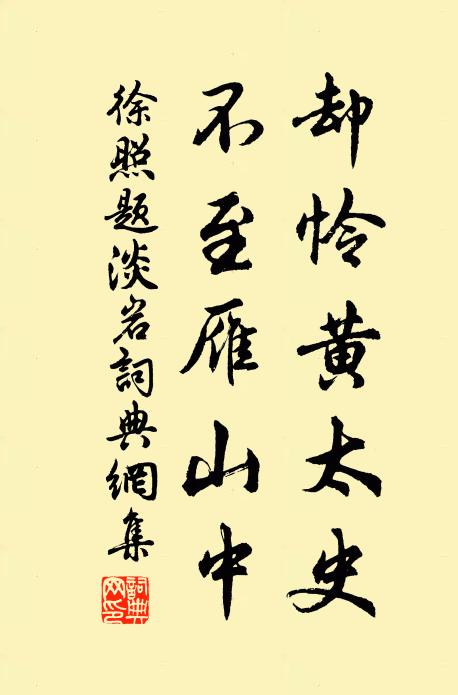 却怜黄太史
不至雁山中
徐照题淡岩詞典網集
詞典网印